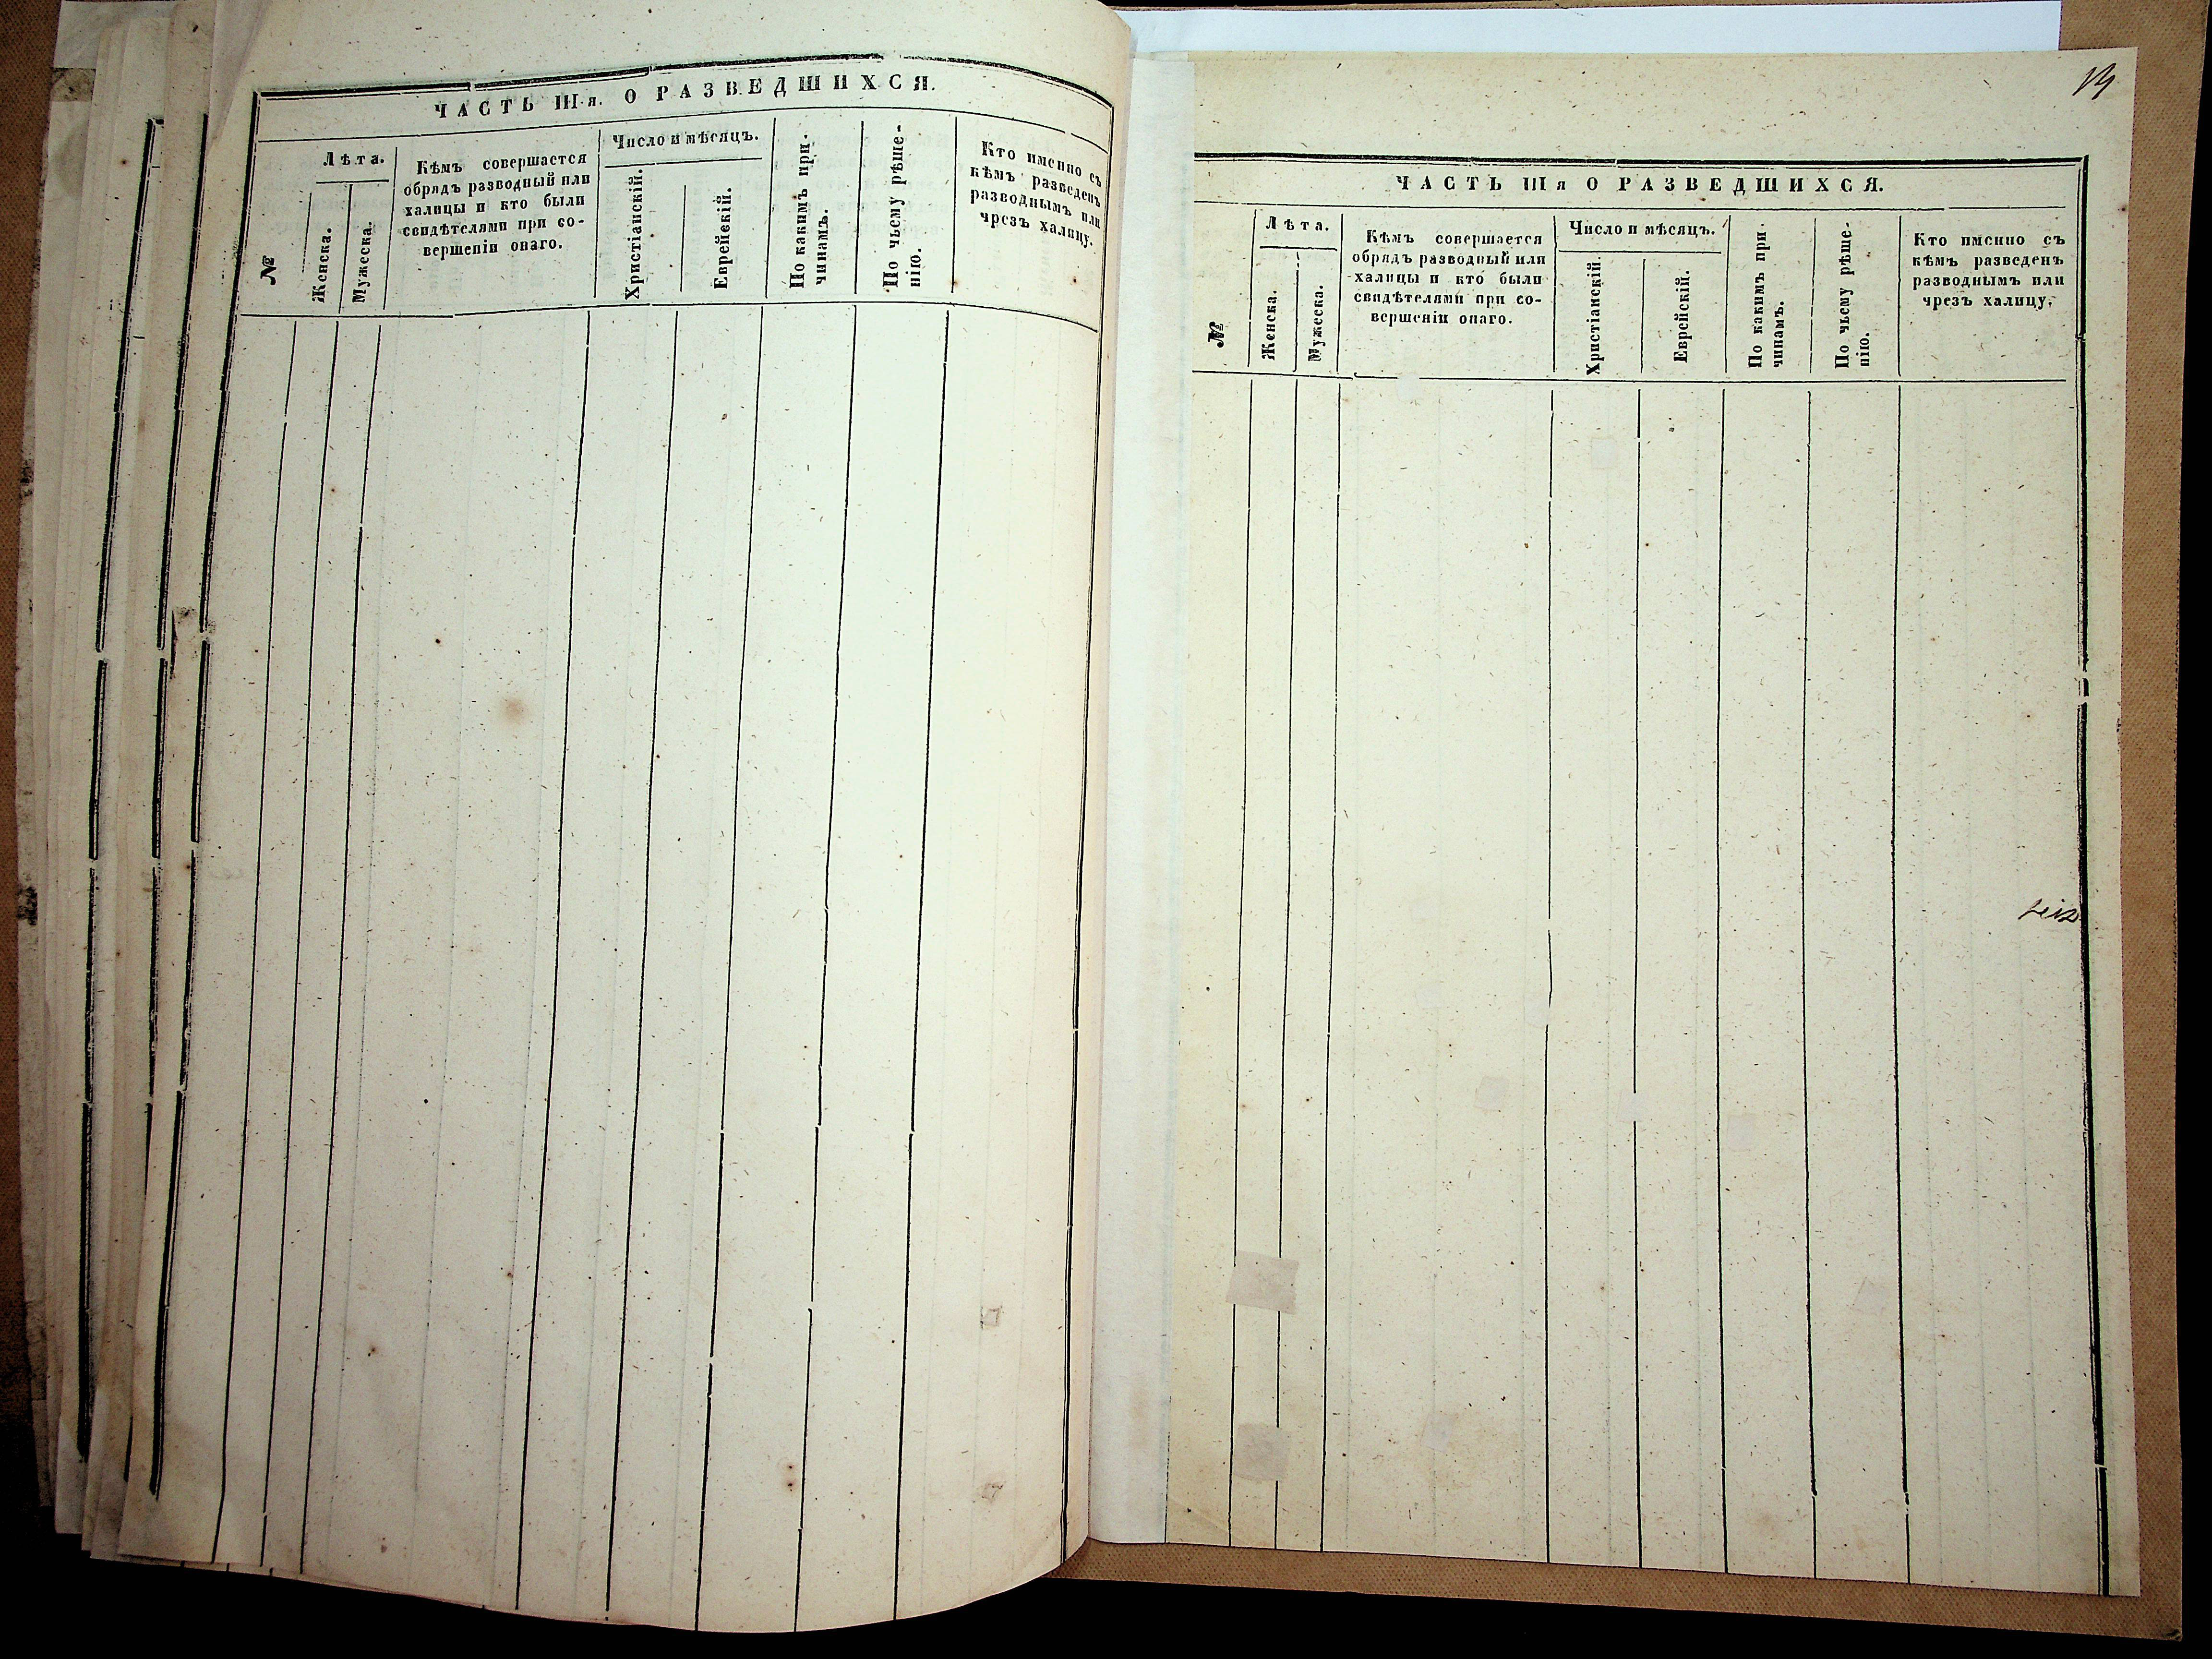 ЧАСТЬ III-я. О РАЗВЕДШИХСЯ.
№
Лѣта.
Женска.
Мужеска.
Кѣмъ совершается
обрядъ разводный или
халицы и кто были
свидѣтелями при со-
вершеніи онаго.
Число и мѣсяцъ.
Христіанскій.
Еврейскій.
По какимъ при-
чинамъ.
По чьему рѣше-
нію.
Кто именно съ
кѣмъ разведенъ
разводнымъ или
чрезъ халицу.
ЧАСТЬ III я О РАЗВЕДШИХСЯ.
№
Лѣта.
Женска.
Мужеска.
Кѣмъ совершается
обрядъ разводный или
халицы и кто были
свидѣтелями при со-
вершеніи онаго.
Число и мѣсяцъ.
Христіанскій.
Еврейскій.
По какимъ при-
чинамъ.
По чьему рѣше-
нію.
Кто именно съ
кѣмъ разведенъ
разводнымъ или
чрезъ халицу.